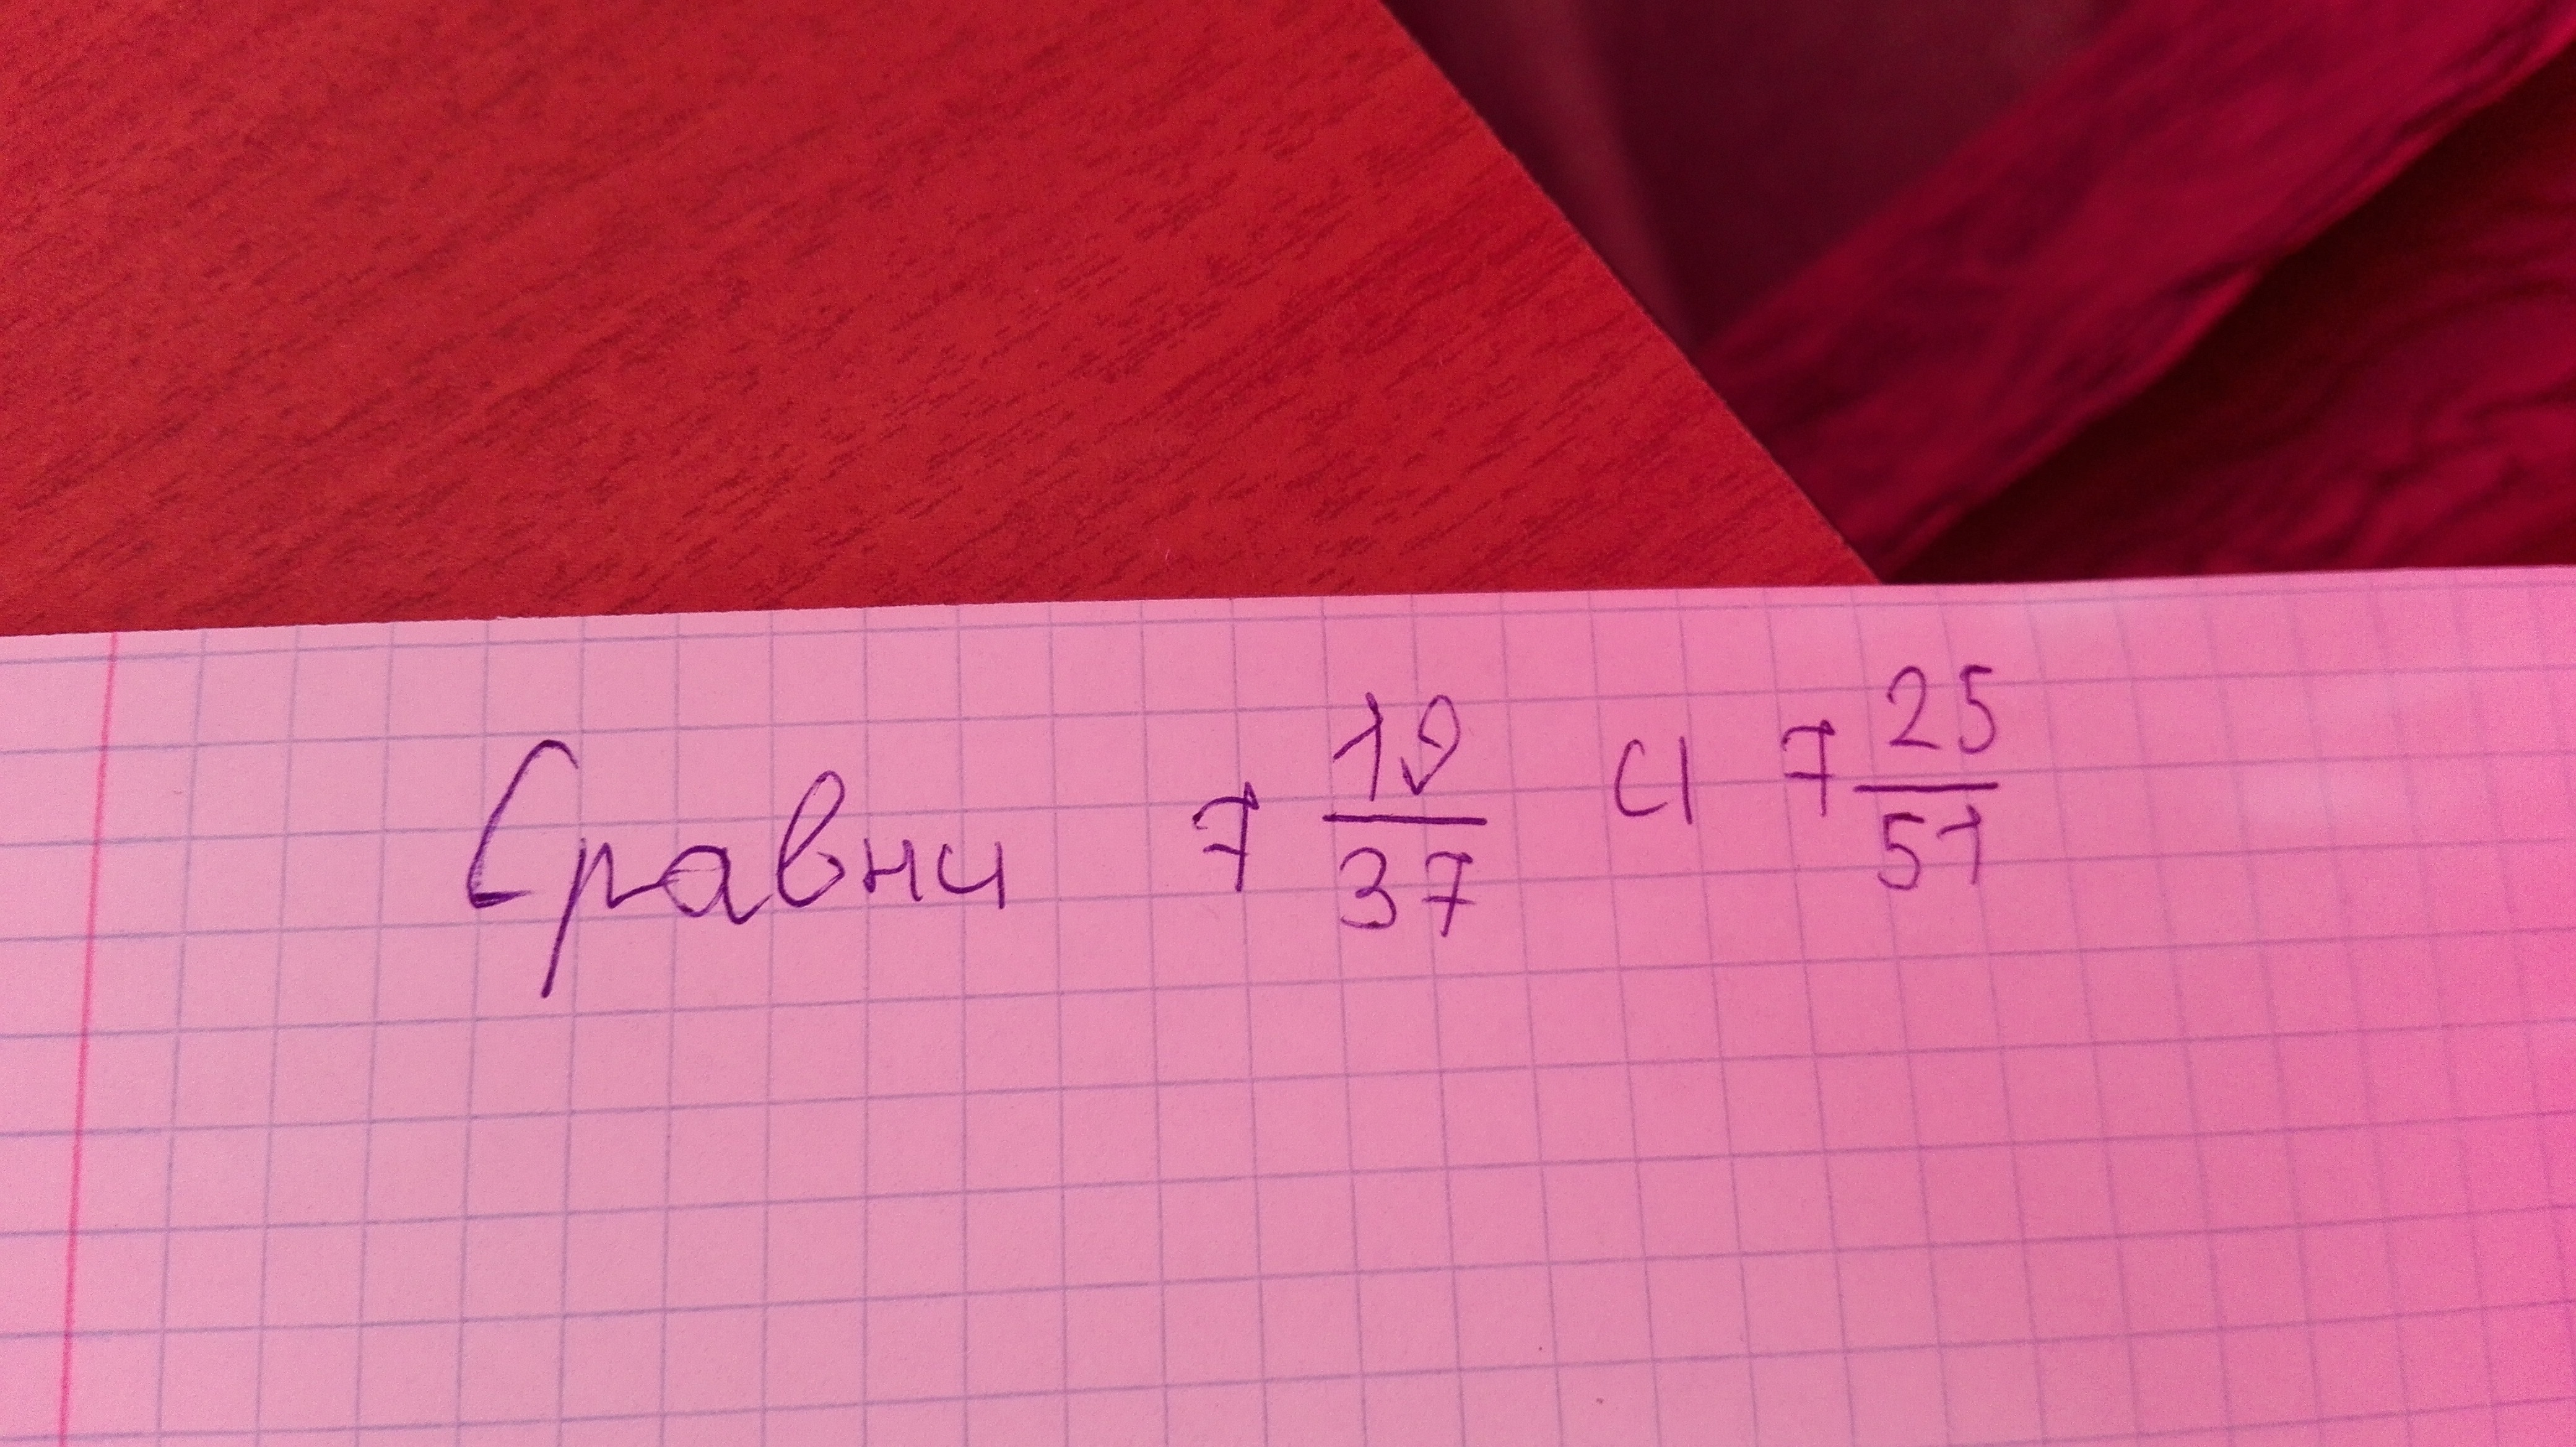 Сравни 7 19/37 и 7 25/51